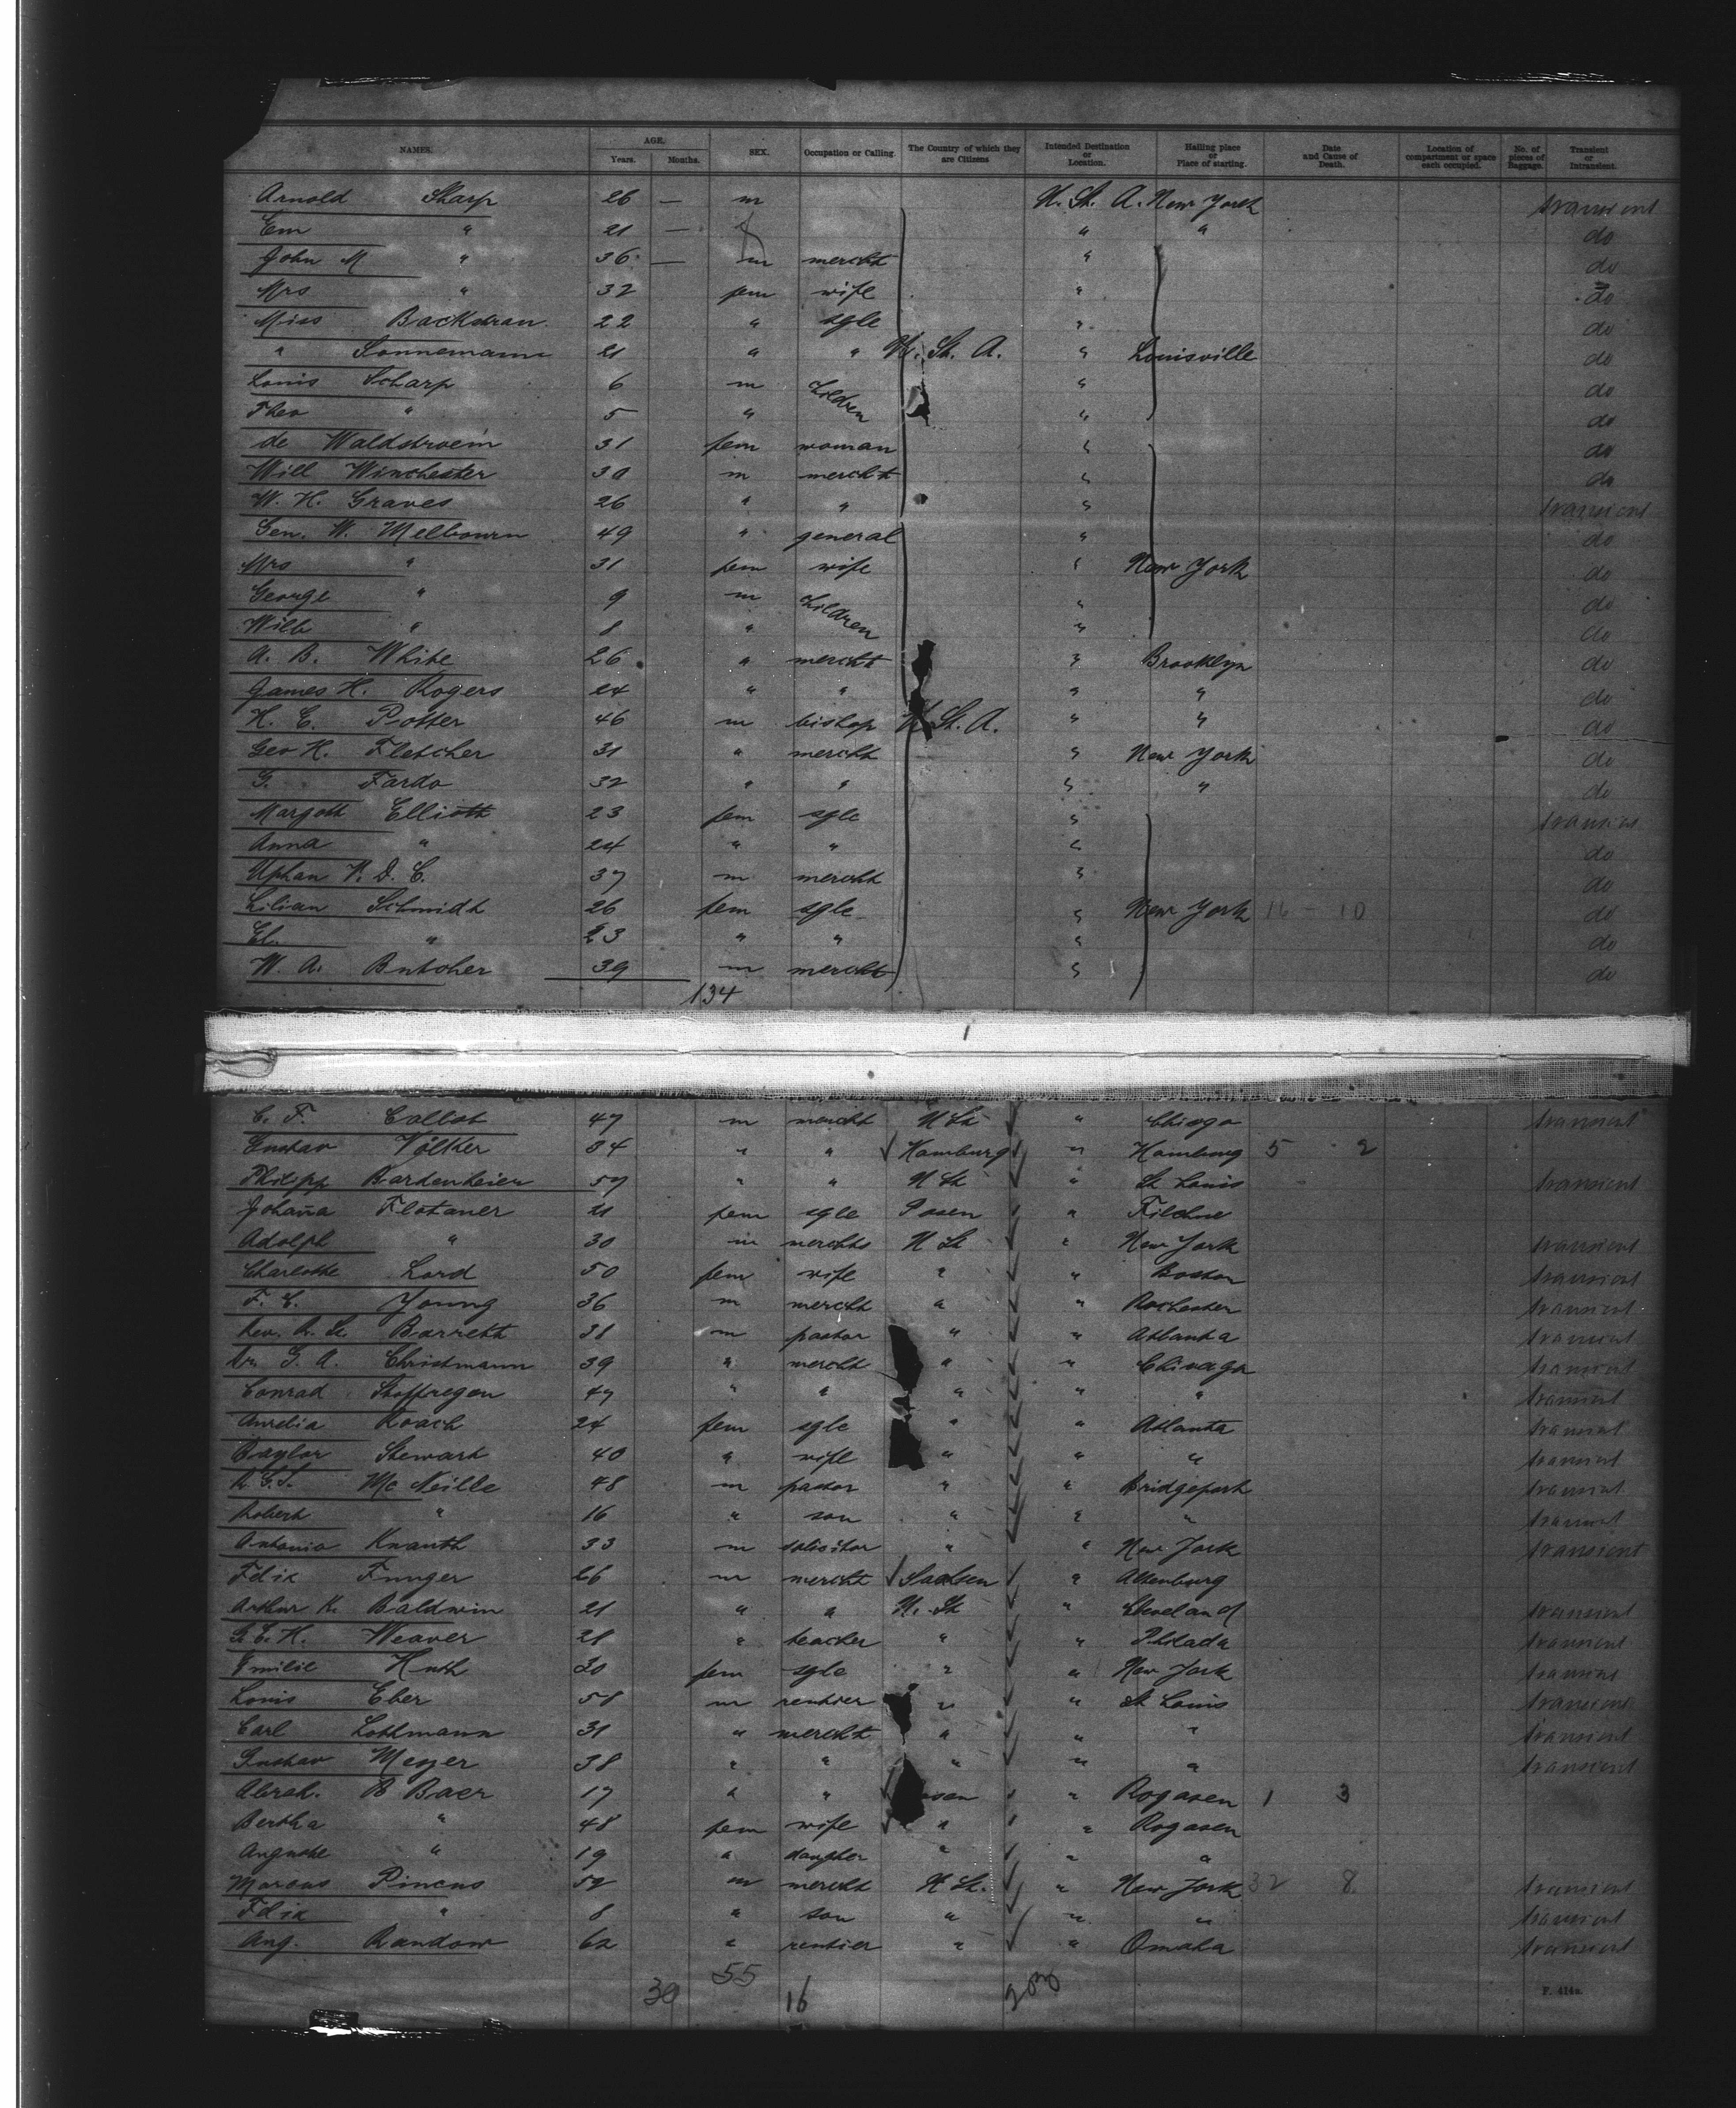 NAMES. AGE. Years. Months. SEX. Occupation or Calling. The Country of which they are Citizens Intended Destination or Location. Hailing place or Place of starting. Date and Cause of Death. Location of compartment or space each occupied. No. of pieces of Baggage. Transient or Intransient.
Arnold Sharp 26 — m U. St. A. New York transient
Em " 21 — f " " do
John M " 36 — m mercht " do
Mrs " 32 fem wife " do
Miss Backstran 22 " sgle " do
" Sonnemann 21 " " U. St. A. " Louisville do
Louis Scharp 6 m children " do
Theo " 5 " " do
de Waldstroem 31 fem woman " do
Will Winchester 30 m mercht " do
W. H. Graves 26 " " " transient
Gen. W. Melbourn 49 " general " do
Mrs " 31 fem wife " New York do
George " 9 m children " do
Will " 8 " " do
A. B. White 26 " mercht " Brooklyn do
James H. Rogers 24 " " " " do
H. C. Potter 46 m bishop U. St. A. " " do
Geo H. Fletcher 31 " mercht " New York do
G. Fardo 32 " " " " do
Margoth Elliott 23 fem sgle " transient
Anna " 24 " " " do
Uphan F. D. C. 37 m mercht " do
Lilian Schmidt 26 fem sgle " New York 16 — 10 do
El. " 23 " " " do
W. A. Butcher 39 m mercht " do
134
1
C. F. Collot 47 m mercht U St " Chicgo transient
Gustav Völker 34 " " Hamburg " Hamburg 5 2
Philipp Bardenheier 57 " " U St " St Louis transient
Johaña Flotauer 21 fem sgle Posen " Filehne
Adolph " 30 m merchts U St " New York transient
Charlotte Lord 50 fem wife " " Boston transient
F. C. Young 36 m mercht " " Rochester transient
Rev. R. St. Barrett 38 m pastor " " Atlanta transient
G. A. Christmann 39 " mercht " " Chicago transient
Conrad Stoffregen 47 " " " " " transient
Aurelia Roach 24 fem sgle " " Atlanta transient
Baylor Stewart 40 " wife " " " transient
R. G. S. McNeille 48 m pastor " " Bridgeport transient
Robert " 16 " son " " " transient
Antonio Knauth 33 m solicitor " " New York transient
Felix Funger 26 m mercht Sachsen " Altenburg
Arthur K. Baldwin 21 " " U. St " Cleveland transient
G. C. H. Weaver 28 " teacher " " Philada transient
Emilie Huth 30 fem sgle " " New York transient
Louis Eber 58 m rentier " " St Louis transient
Carl Lothmann 31 " mercht " " " transient
Gustav Meyer 38 " " " " " transient
Abrah. B Baer 17 " " " Rogasen 1 3
Bertha " 48 fem wife " " Rogasen
Auguste " 19 " daughter " " "
Marcus Pincus 52 m mercht U St. " New York 32 8 transient
Felix " 8 " son " " " transient
Aug. Randow 62 " rentier " " Omaha transient
55
30 16 200
F. 414a.